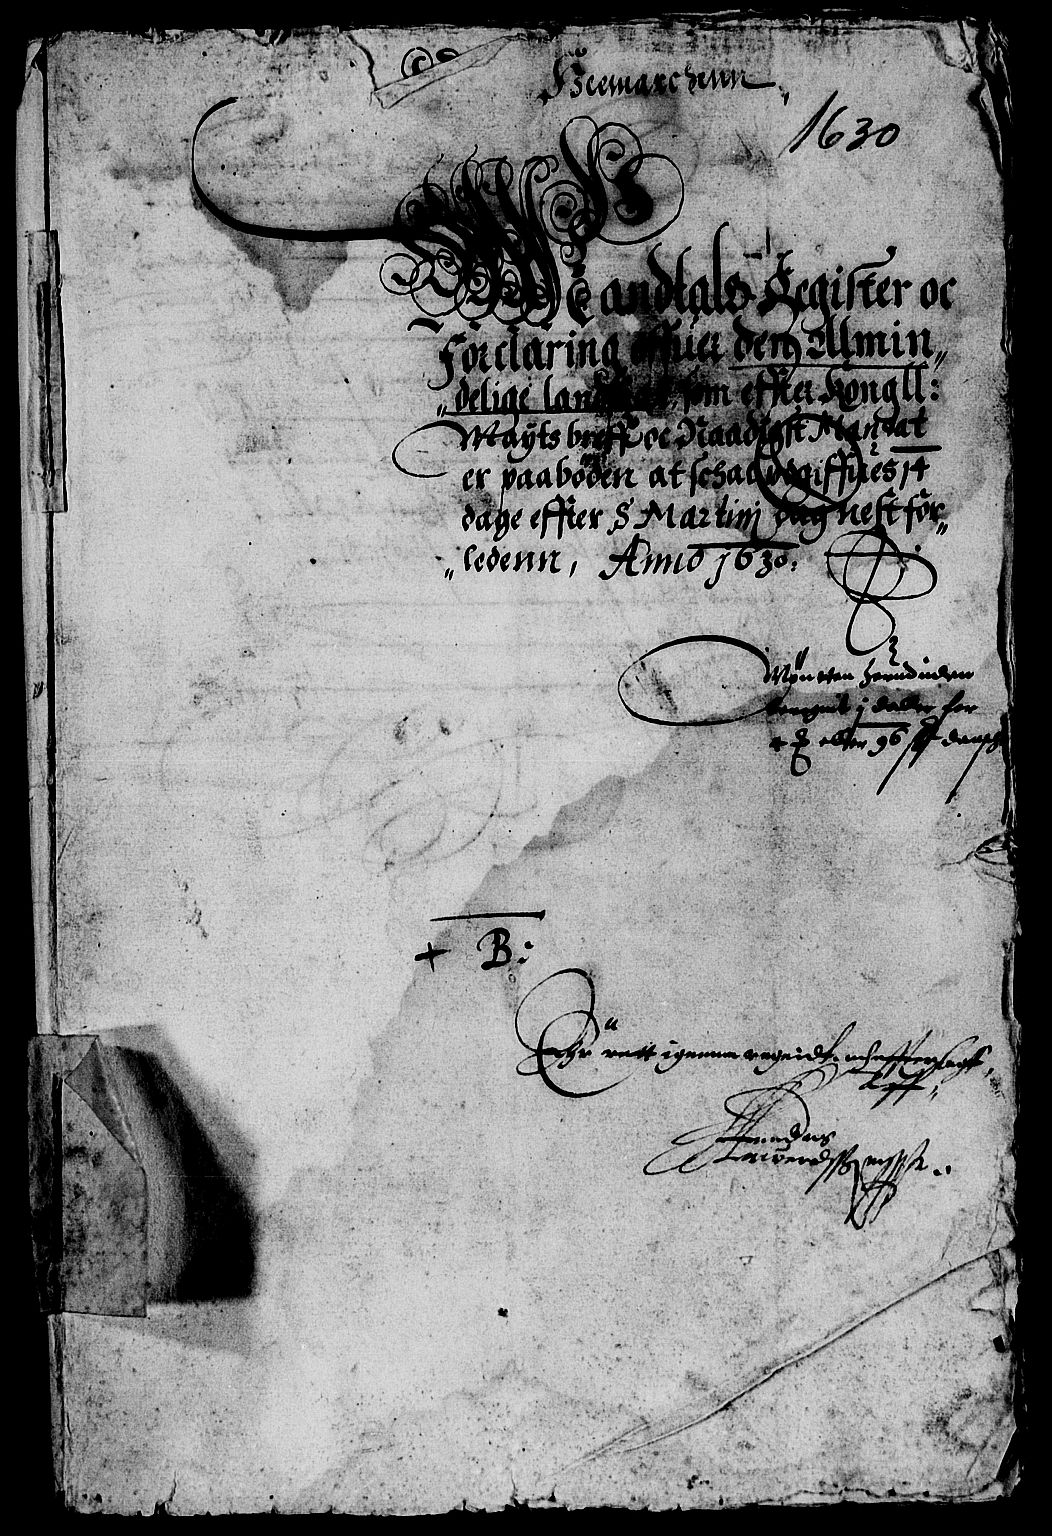 Heemarchenn
1630
Mandtals Register oc
Forclaring effuer den Allmin„
„delige landschat som effter Kongll:
Mayts breff oc Naadigst Mandat
er paabøden at schall udgiffues 14
dage effter S Martinj dag nest for„
„ledenn, Anno 1630:
Mynten herudinden
beregnit j daler for
4 eller 96 ß dansche
+ B:
Ehr rett igennem